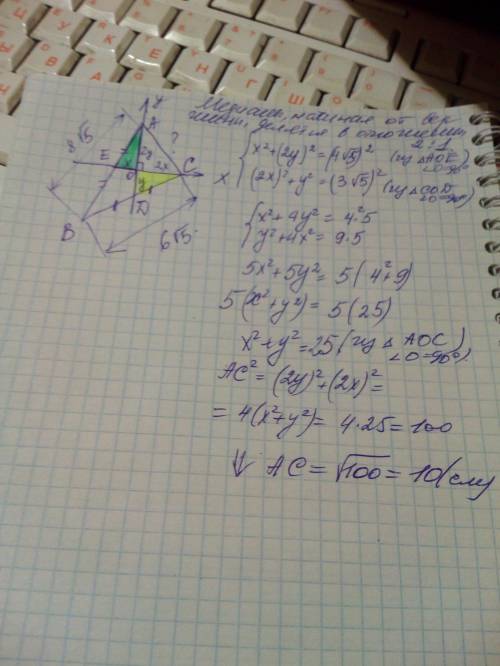 Медианы, начиная от вер
шины, делятся в отношении
2:1
x²+(2y)²=(4√5)² (из ΔAOE
∠O=90°
(2x)²+y²=(3√5)² (из ΔCOD
∠O=90°)
x²+4y²=4²·5
y²+4x²=9·5
5x²+5y²=5(4²+9)
5(x²+y²)=5(25)
x²+y²=25 (из Δ AOC)
∠O=90°)
AC²=(2y)²+(2x)²=
=4(x²+y²)=4·25=100
⇓ AC=√100=10(см)
y
A
?
8√5
E
2y
x
2x
O
C
x
y
D
B
6√5